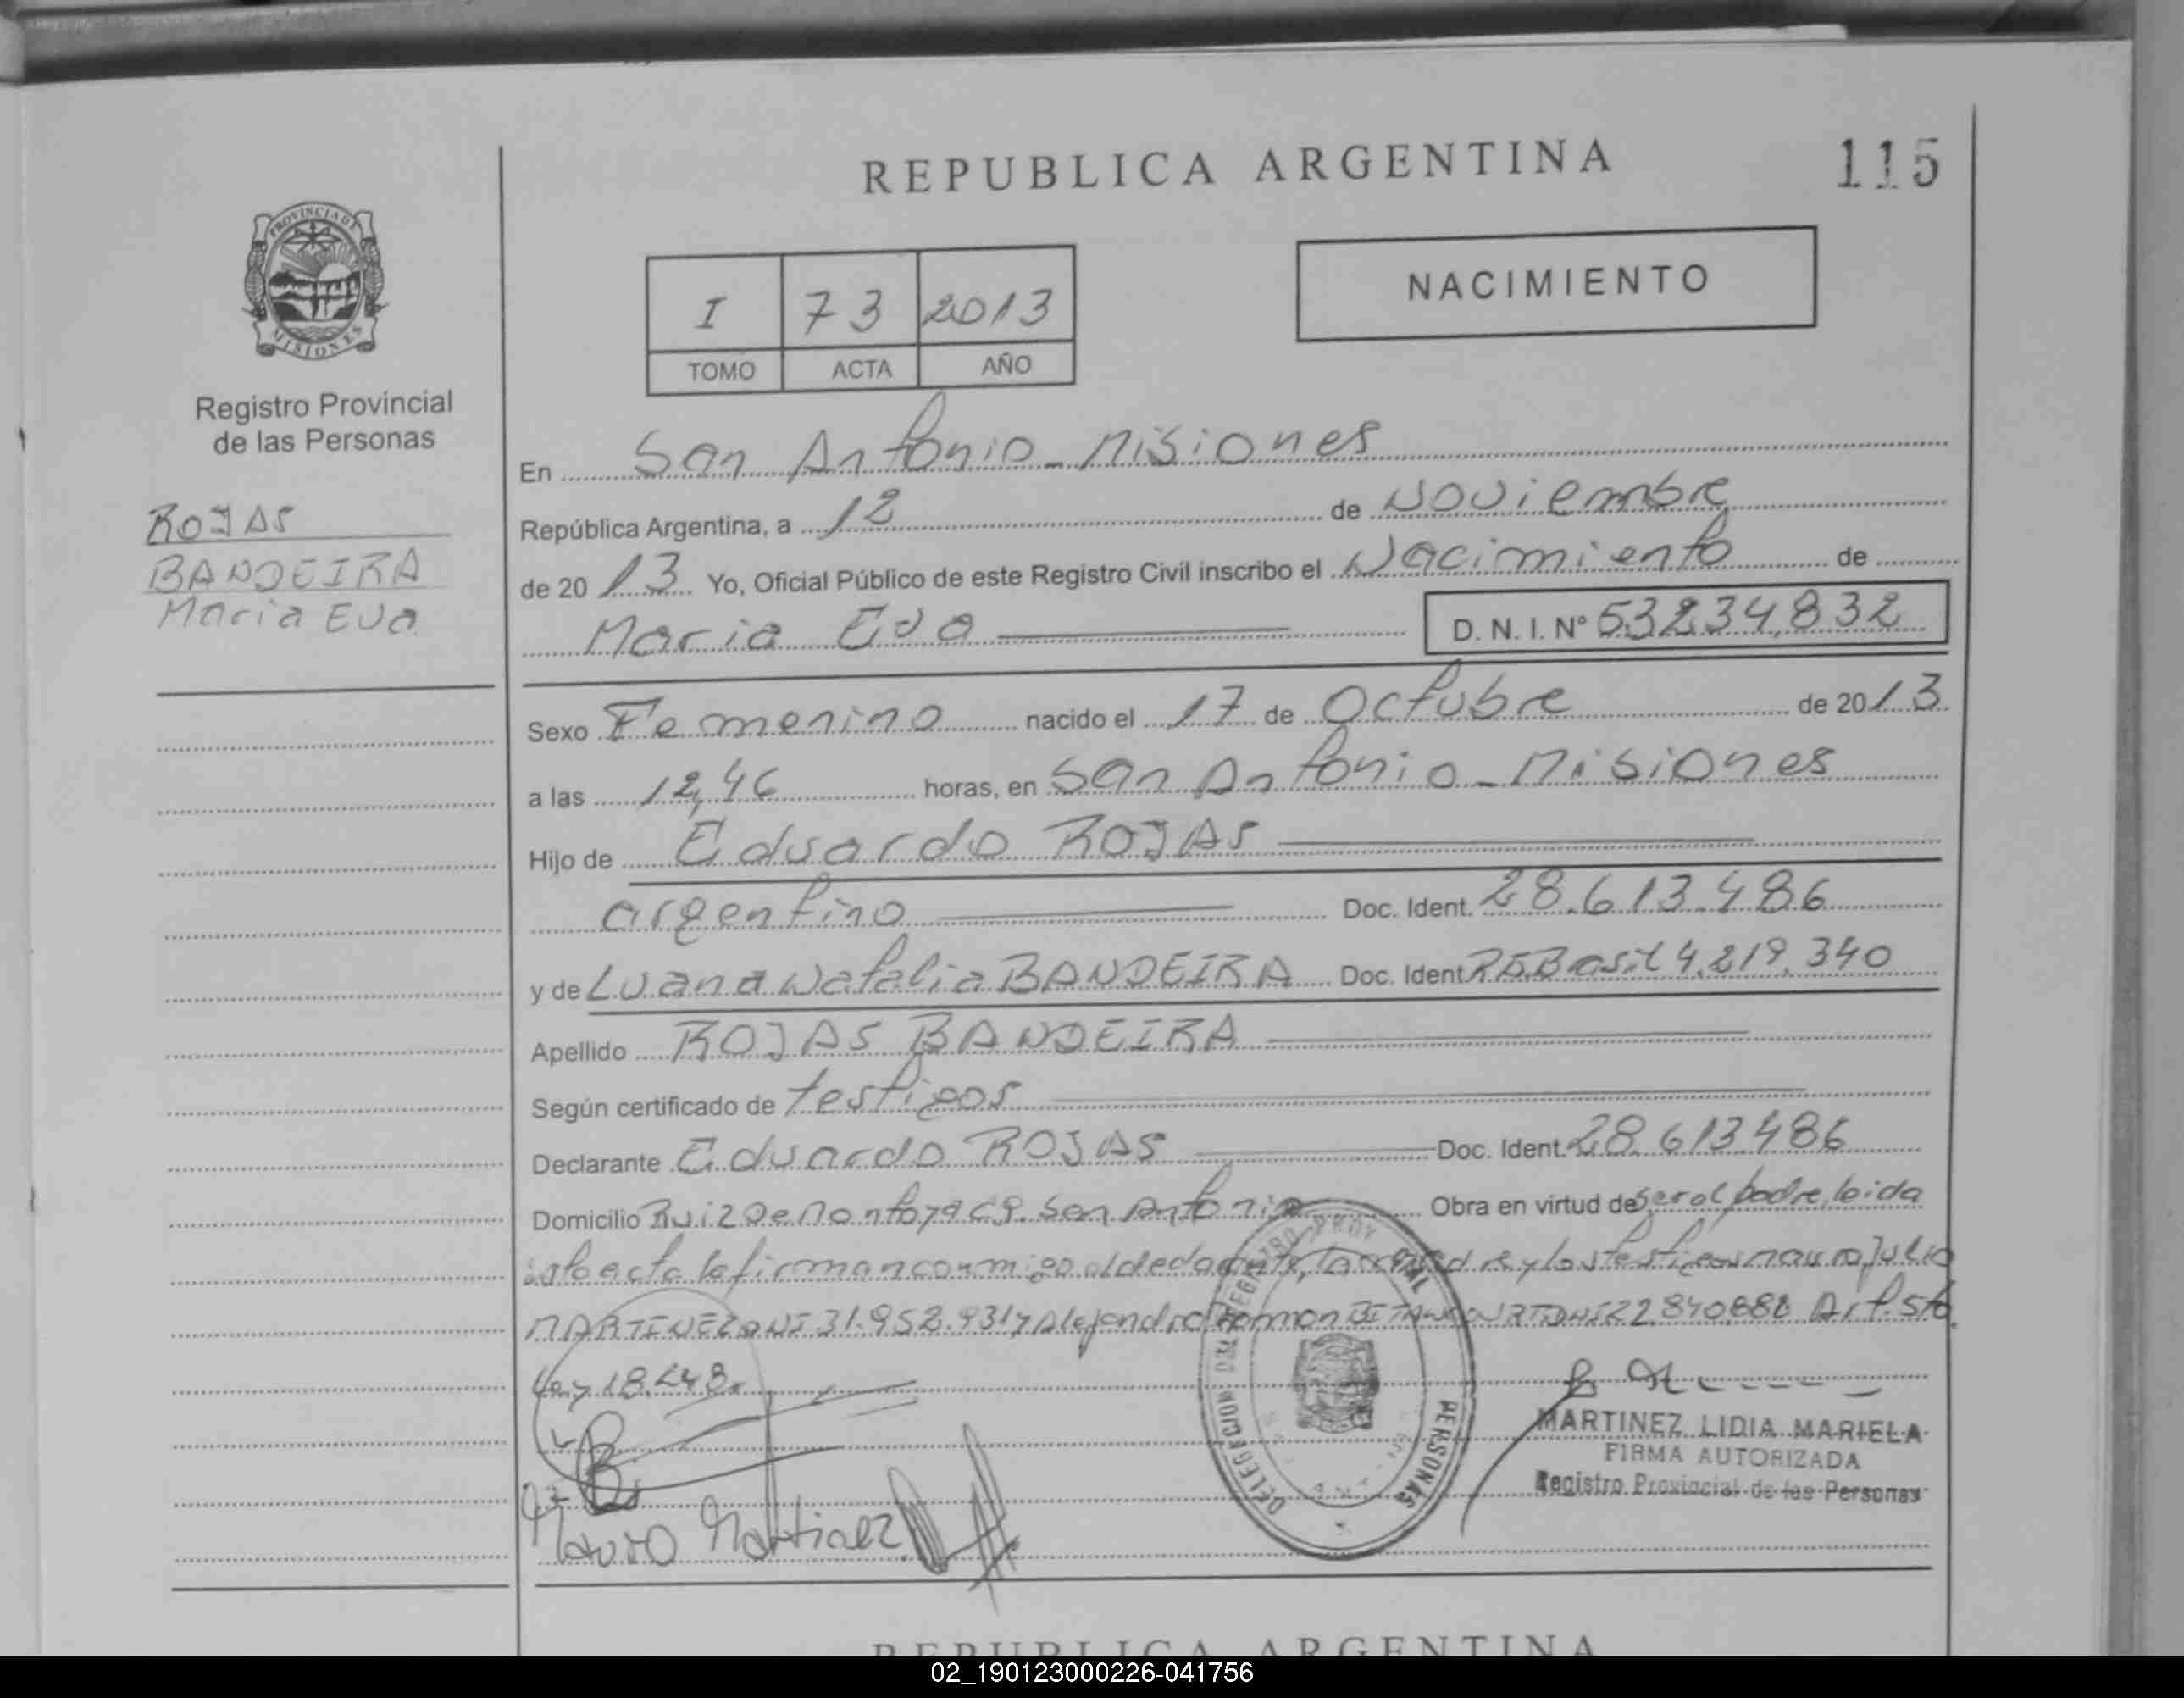 REPUBLICA ARGENTINA
115
PROVINCIA DE
MISIONES
Registro Provincial
de las Personas
ROJAS
BANDEIRA
Maria Eva
I 73 2013
TOMO ACTA AÑO
NACIMIENTO
En San Antonio - Misiones
República Argentina, a 12 de Noviembre
de 2013 Yo, Oficial Público de este Registro Civil inscribo el Nacimiento de
Maria Eva D.N.I. N° 53234832
Sexo Femenino nacido el 17 de Octubre de 2013
a las 12,46 horas, en San Antonio - Misiones
Hijo de Eduardo ROJAS
argentino Doc. Ident. 28.613.486
y de Luana Natalia BANDEIRA Doc. Ident Brasil 4.219.340
Apellido ROJAS BANDEIRA
Según certificado de testigos
Declarante Eduardo ROJAS Doc. Ident. 28.613.486
Domicilio Ruiz De Montoya San Antonio Obra en virtud de Ser el padre, leida
esta acta la firman conmigo el los testigos Mauro Julio
MARTINEZ DNI 31.952.931 y Alejandro Ramon DNI 22.840.688 Art. 5to
Ley 18.248.
DELEGACION REGISTRO PROVINCIAL PERSONAS
MARTINEZ LIDIA MARIELA
FIRMA AUTORIZADA
Registro Provincial de las Personas
Mauro Martinez
REPUBLICA ARGENTINA
02_190123000226-041756